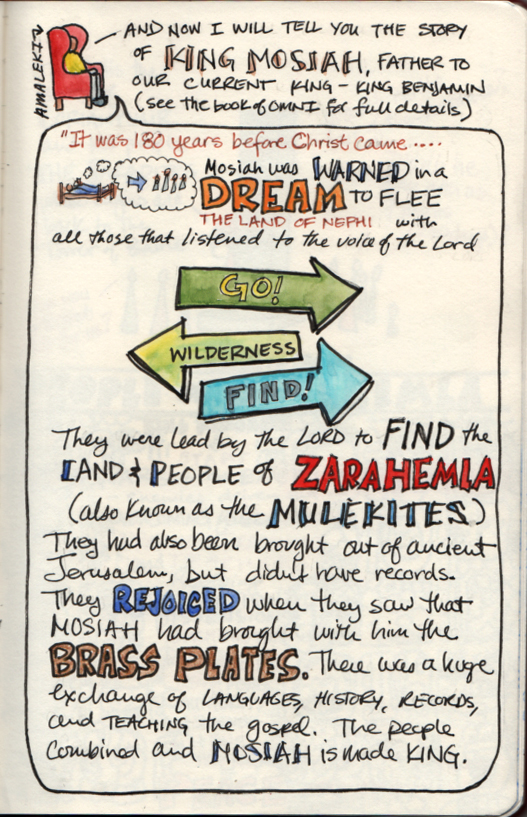 AMALEKI
AND NOW I WILL TELL YOU THE STORY
OF KING MOSIAH, FATHER TO
OUR CURRENT KING - KING BENJAMIN
(see the book of OMNI for full details)
"It was 180 years before Christ came ....
Mosiah was WARNED in a
DREAM TO FLEE
THE LAND OF NEPHI with
all those that listened to the voice of the Lord
GO!
WILDERNESS
FIND!
They were lead by the LORD to FIND the
LAND & PEOPLE of ZARAHEMLA
(also known as the MULEKITES)
They had also been brought out of ancient
Jerusalem, but didn't have records.
They REJOICED when they saw that
MOSIAH had brought with him the
BRASS PLATES. There was a huge
exchange of LANGUAGES, HISTORY, RECORDS,
and TEACHING the gospel. The people
combined and MOSIAH is made KING.